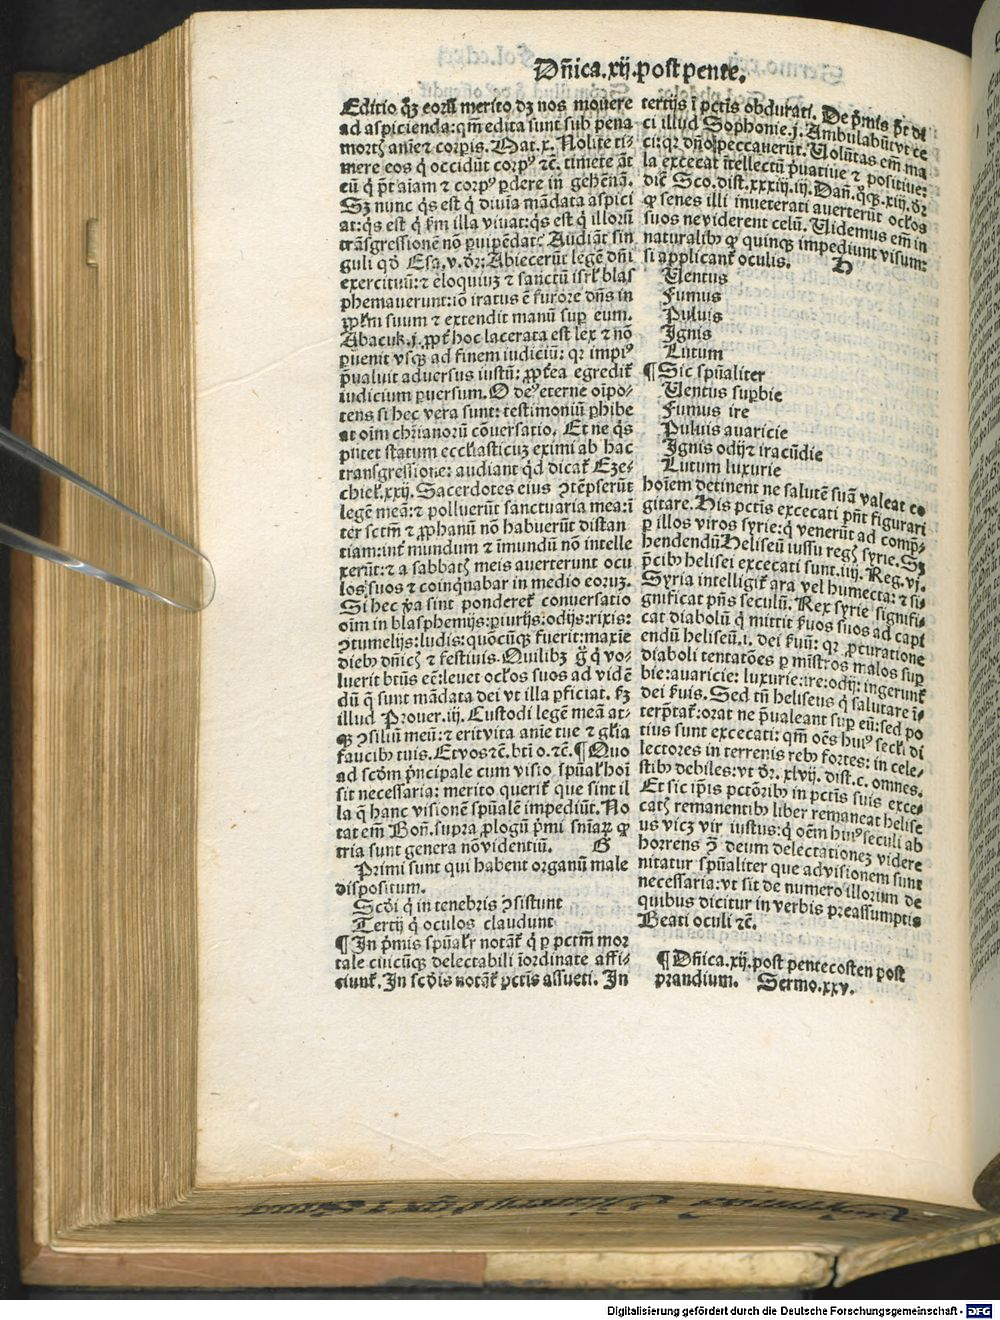 Dñica.xij.post pente.
Editio qꝫ eorū merito dꝫ nos mouere
ad aspicienda: qm̄ edita sunt sub pena
mortꝭ anīe ⁊ corpis. Mat.x. Nolite ti-
mere eos q̇ occidūt corpꝰ ⁊c̄. timete āt
eū q̇ pt̄ aīam ⁊ corpꝰ ꝑdere in gehēnā.
Sꝫ nunc q̇s est q̇ diuīa mādata aspici
at: q̇s est q̇ ẜm illa viuat: q̇s est q̇ illorū
trāsgressionē nō ꝑuipēdat? Audiāt sin
guli qd̓ Esa.v. dr̄: Abiecerūt legē dn̄i
exercituū: ⁊ eloquiuꝫ ⁊ sanctū isrl̓ blas
phemauerunt: iō iratus ē furore dn̄s in
ppl̓m suum ⁊ extendit manū suā sup eum.
Abacuk.j. ꝓpt̓ hoc lacerata est lex ⁊ nō
ꝑuenit vsqꝫ ad finem iudiciū: qꝛ impiꝰ
p̄ualuit aduersus iustū: ꝓpt̓ea egredit᷑
iudicium ꝑuersum. O deꝰ eterne oīpo-
tens si hec vera sunt: testimoniū ꝑhibe
at oīm chr̄ianorū cōuersatio. Et ne q̇s
putet statum eccl̓iasticuꝫ eximi ab hac
transgressione: audiant qd̓ dicat᷑ Eze-
chiel̓.xxij. Sacerdotes eius ꝯtēpserūt
legē meā: ⁊ polluerūt sanctuaria mea: ī
ter sctm̄ ⁊ ꝓphanū nō habuerūt distan
tiam: int̓ mundum ⁊ īmundū nō intelle
xerūt: ⁊ a sabbatꝭ meis auerterunt ocu
los suos ⁊ coinqnabar in medio eoruꝫ.
Si hec v̓a sint ponderet᷑ conuersatio
oīm in blasphemijs: ꝑiurijs: odijs: rixis:
ꝯtumelijs: ludis: quōcūqꝫ fuerit: maxīe
diebꝫ dn̄icꝭ ⁊ festiuis. Quilibꝫ g̊ q̇ vo-
luerit btūs eē: leuet ocl̓os suos ad vidē
dū q̄ sunt mādata dei vt illa ꝑficiat. ẜꝫ
illud Prouer.iij. Custodi legē meā at-
qꝫ ꝯsiliū meū: ⁊ erit vita anīe tue ⁊ gr̄a
faucibꝫ tuis. Et vos ⁊c̄. bti o. ⁊c̄. ¶ Quo
ad scd̓m pncipale cum visio spūal̓ hoī
sit necessaria: merito querit᷑ que sint il
la q̄ hanc visionē spūalē impediūt. No
tat em̄ Boñ. supra ꝓlogū pmi snīaꝝ ꝙ
tria sunt genera nō videntiū. G
Primi sunt qui habent organū male
dispositum.
Scd̓i q̇ in tenebris ꝯsistunt
Tertij q̇ oculos claudunt
¶ In pmis spūal̓r notāt᷑ q̇ ꝑ pctm̄ mor
tale cuicūqꝫ delectabili īordinate affi-
ciunt᷑. In scd̓is notāt᷑ pctīs assueti. In
tertijs ī pctīs obdurati. De pmis pt̄ di
ci illud Sophonie.j. Ambulabūt vt ce
ci: qꝛ dn̄o peccauerūt. Volūtas em̄ ma
la excecat ītellectū puatiue ⁊ positiue:
dic̄ Sco. dist.xxxiij.iij. Dan̄. q̇qꝫ.xiij. dr̄
ꝙ senes illi inueterati auerterūt ocl̓os
suos ne viderent celū. Videmus em̄ in
naturalibꝫ ꝙ quinqꝫ impediunt visum:
si applicant᷑ oculis. H
Ventus
Fumus
Puluis
Ignis
Lutum
¶ Sic spūaliter
Ventus supbie
Fumus ire
Puluis auaricie
Ignis odij ⁊ iracūdie
Lutum luxurie
hoīem detinent ne salutē suā valeat co
gitare. His pctīs excecati pn̄t figurari
ꝑ illos viros syrie: q̇ venerūt ad comp̄-
hendendū Heliseū iussu regꝭ syrie. Sꝫ
p̄cibꝫ helisei excecati sunt.iiij. Reg.vj.
Syria intelligit᷑ ara vel humecta: ⁊ si-
gnificat pn̄s seculū. Rex syrie signifi-
cat diabolū q̇ mittit ẜuos suos ad capi
endū heliseū.i. dei ẜuū: qꝛ ꝓcuratione
diaboli tentatōes ꝑ mīstros malos sup
bie: auaricie: luxurie: ire: odij: ingerunt᷑
dei ẜuis. Sed tn̄ heliseus q̇ salutare ī-
terp̄tat᷑: orat ne p̄ualeant sup eū: sed po
tius sunt excecati: qm̄ oēs huiꝰ secl̓i di
lectores in terrenis rebꝫ fortes: in cele-
stibꝫ debiles: vt dr̄. xlvij. dist. c. omnes.
Et sic ip̄is pctōribꝫ in pctīs suis exce-
catꝭ remanentibꝫ liber remaneat helise
us vicꝫ vir iustus: q̇ oēm huiꝰ seculi ab
horrens ꝯ̄ deum delectationeꝫ videre
nitatur spūaliter que ad visionem sunt
necessaria: vt sit de numero illorum de
quibus dicitur in verbis preassumptis
Beati oculi ⁊c̄.
¶ Dn̄ica.xij. post pentecosten post
prandium. Sermo.xxv.
Digitalisierung gefördert durch die Deutsche Forschungsgemeinschaft - DFG